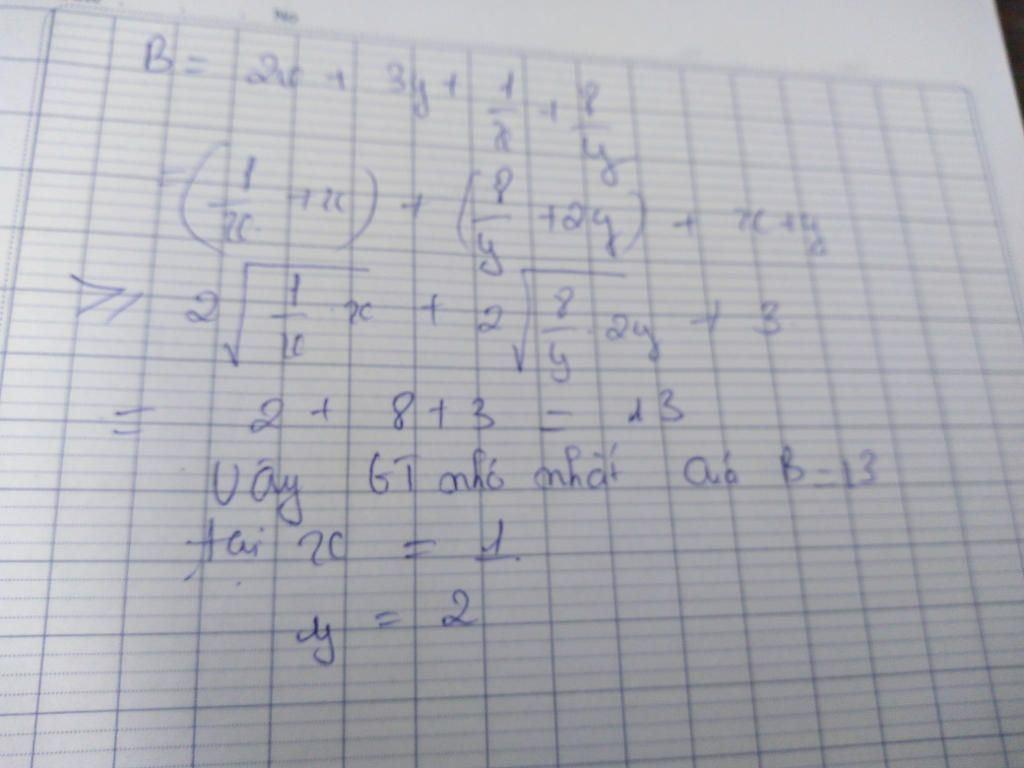 No
B = 2x + 3y + 1/x + 8/y
= (1/x + x) + (8/y + 2y) + x + y
≥ 2√(1/x · x) + 2√(8/y · 2y) + 3
= 2 + 8 + 3 = 13
Vậy GT nhỏ nhất của B = 13
tại x = 1
y = 2